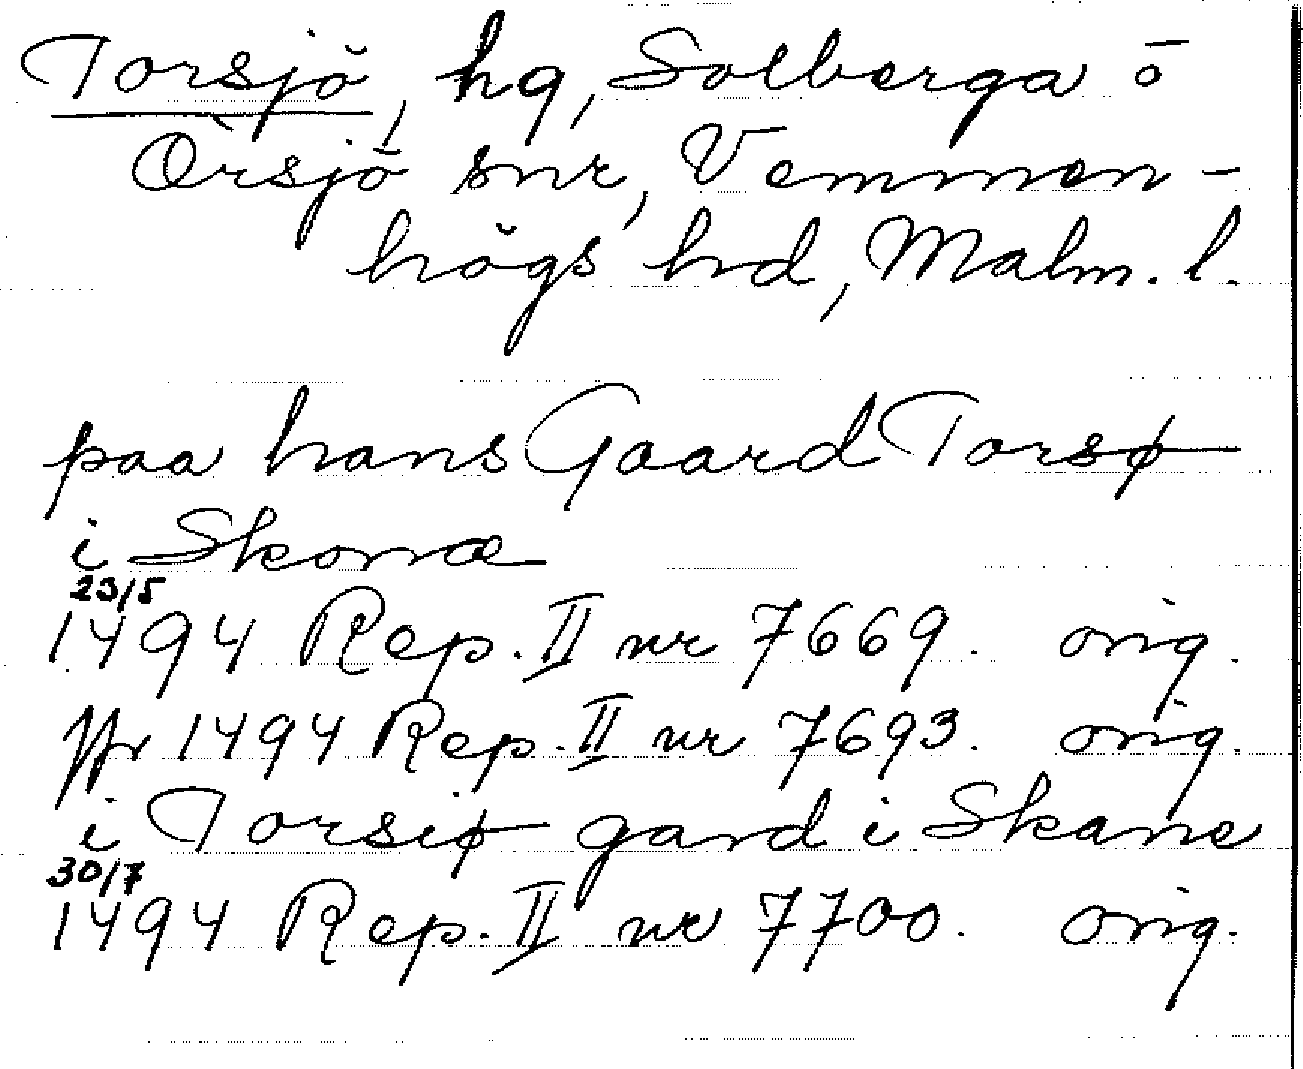 Torsjö, hg, Solberga o
Örsjö snr, Vemmen-
högs hd, Malm. l.
paa hans Gaard Torsø
i Skonæ
23/5
1494 Rep. II nr 7669. orig.
jfr 1494 Rep. II nr 7693. orig.
i Torsiø gard i Skane
30/7
1494 Rep. II nr 7700. orig.